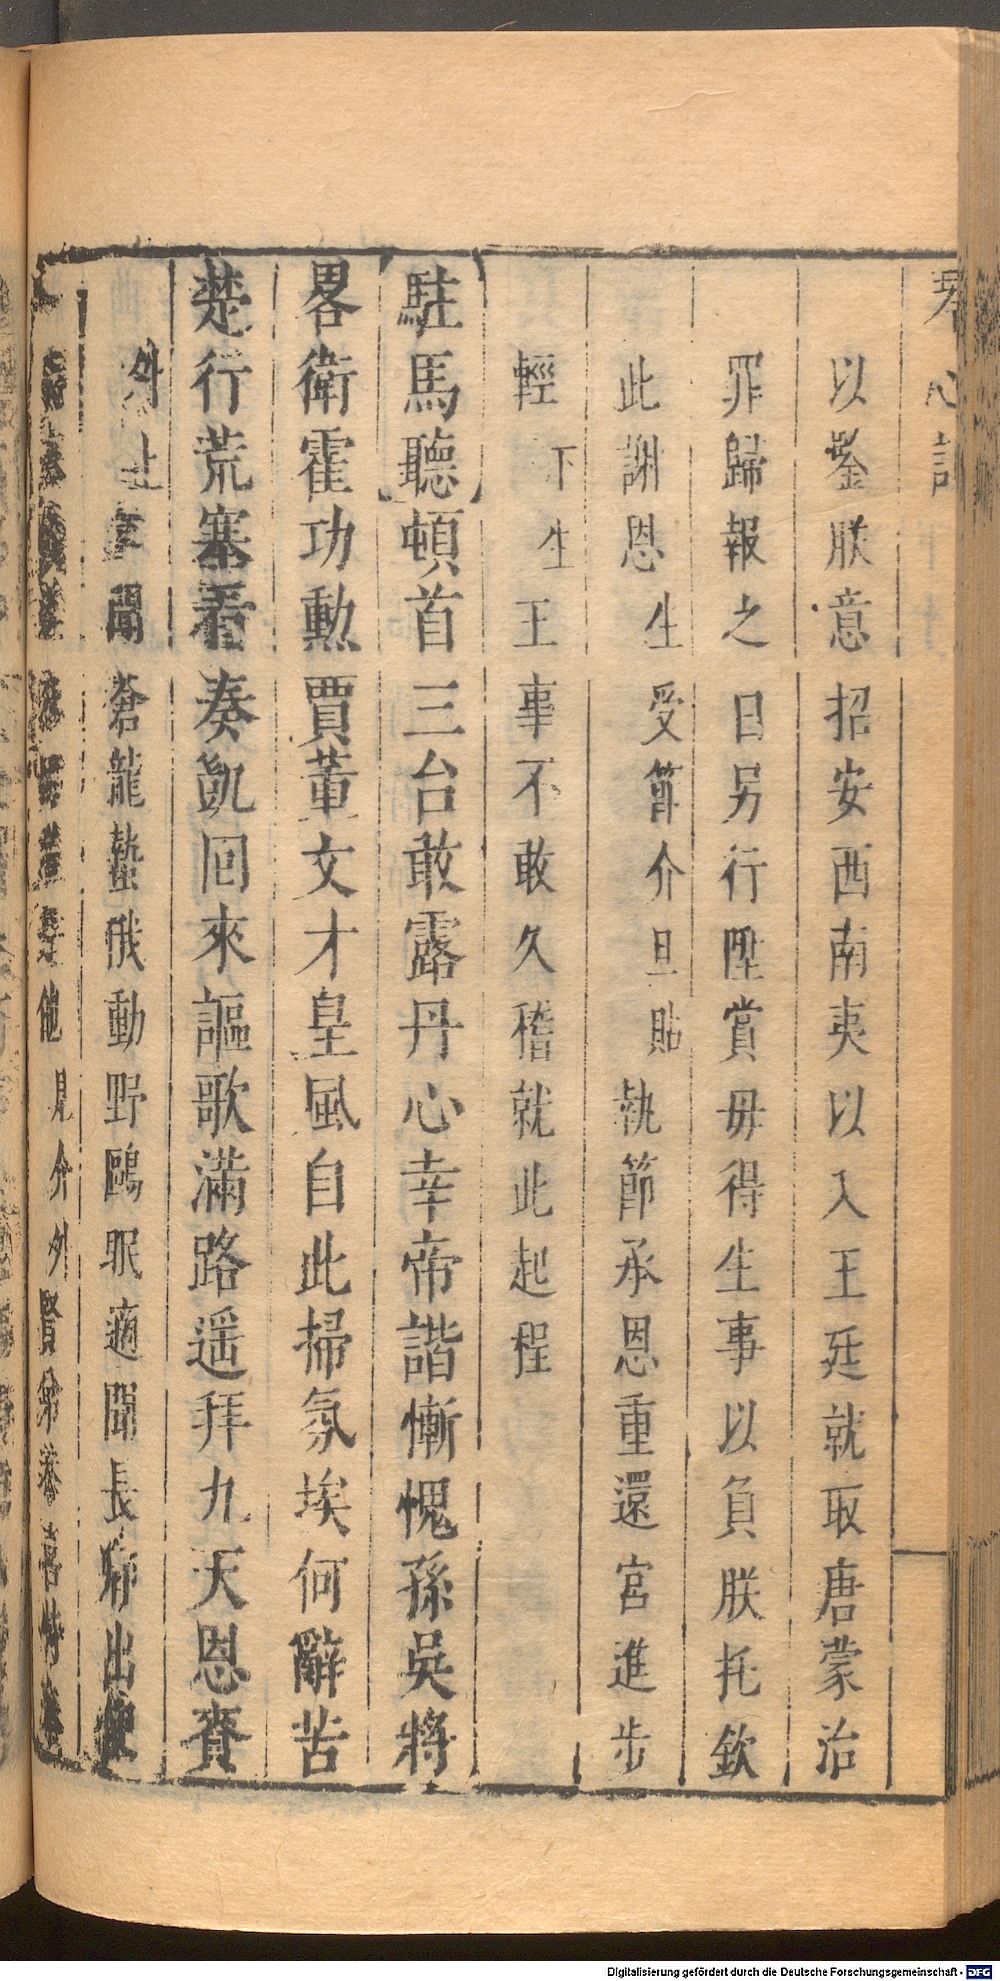 琴心記
以鑒朕意招安西南夷以入王廷就取唐蒙治
罪歸報之日另行陞賞毋得生事以負朕托欽
此謝恩生受節介旦貼執節承恩重還宮進步
輕下生王事不敢久稽就此起程
駐馬聽頓首三台敢露丹心幸帝諧慚愧孫吳將
畧衛霍功勳賈董文才皇風自此掃氛埃何辭苦
楚行荒塞看奏凱回來謳歌滿路遥拜九天恩賚
外上聞蒼龍蟄俄動野鷗眠適聞長卿出使
他見介外賢弟恭喜
Digitalisierung gefördert durch die Deutsche Forschungsgemeinschaft - DFG